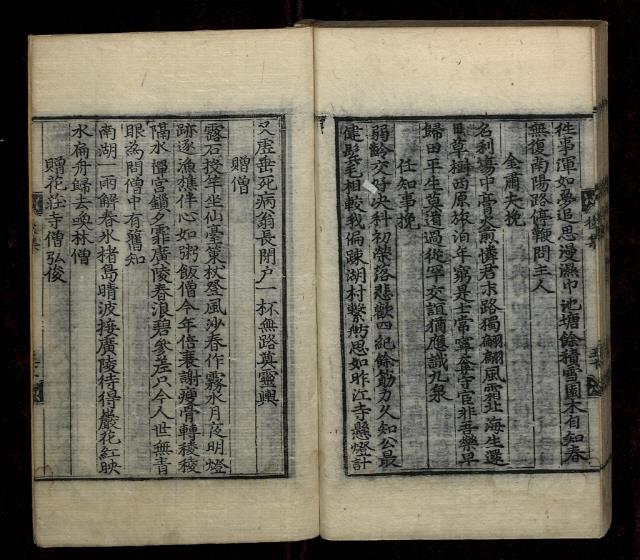 徃事渾如夢追思漫㵢巾池塘餘積雪園木自知春
無復南陽路停鞭問主人
金肅夫挽
名利塲中膏火煎憐君末路獨翩翩風霜北海生還
日草樹西原旅泊年窮是士常寧庇奪官非吾樂早
歸田平生莫道過從罕交誼猶應識九泉
任知事挽
弱齡交好决科初榮落悲歡四紀餘筋力久知公最
健髮毛相較我偏踈湖村繫舫思如昨江寺懸燈計
又虛垂死病翁長閉户一杯無路莫靈輿
贈僧
露石授年坐仙臺策杖祭風沙春作霧水月夜明燈
跡逐漁樵伴心如粥飯僧今年倍衰謝瘦骨轉稜稜
隔水禪宮鎖夕霏廣陵春浪碧參差只今人世無青
眼爲問僧中有舊知
南湖一雨解春氷楮島晴波接廣陵待得巖花紅映
水扁舟歸去喚林僧
贈花莊寺僧弘俊